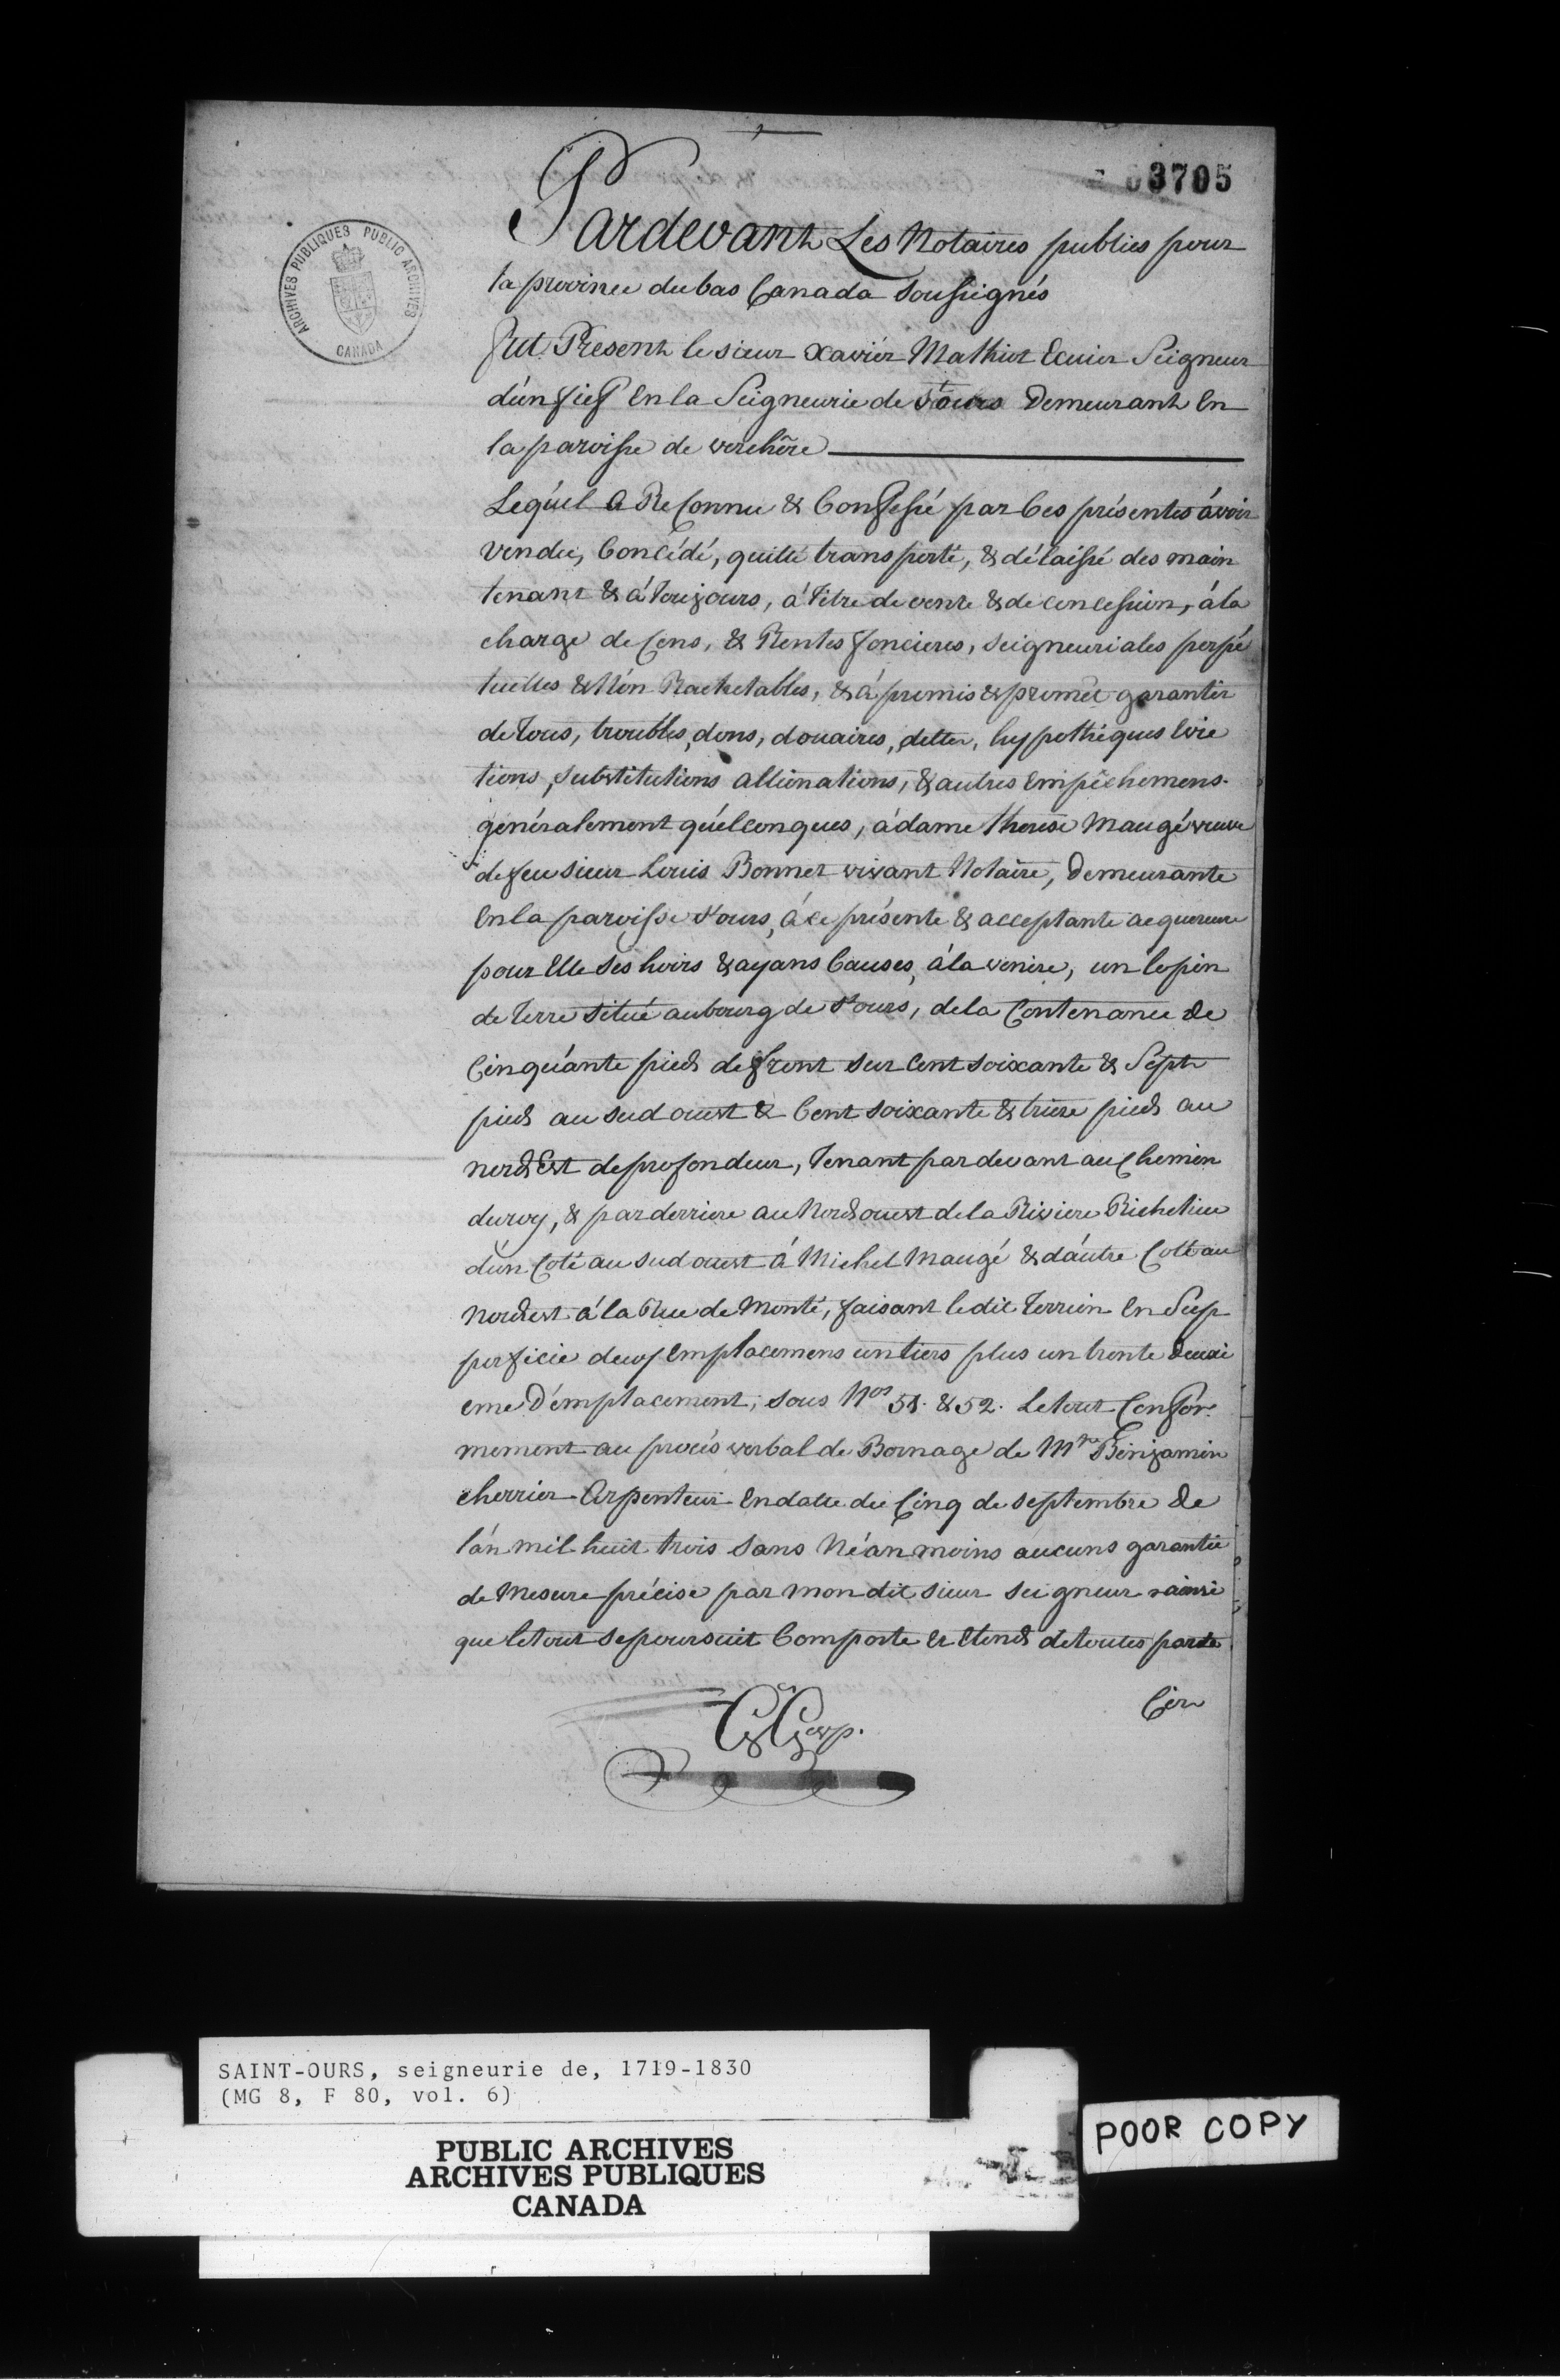 03705
ARCHIVES PUBLIQUES PUBLIC ARCHIVES
CANADA
Pardevant Les Notaires publics pour
la province du bas Canada soussignés
fut Present le sieur Xaviér Mathiot Ecuier Seigneur
d'ún fief En la Seigneurie de St ours Demeurant En
la paroisse de verchêre
Lequél a ReConnu & Confessé par Ces présentes ávoir
vendu, Concédé, quitté transporté, & délaissé des main
tenant & á toujours, á titre de vente & de concession, á la
charge de Cens, & Rentes foncieres, seigneuriales perpé
tuelles & Nón Rachetables, & á promis & promêt garantir
de tous, troubles, dons, douaires, dettes, hypothéques Evic
tions, substitutions allienations, & autres Empêchemens
genéralement quélconques, á dame therese Maugé veuve
de feu sieur Louis Bonnet vivant Notaire, Demeurante
En la paroisse St ours, á ce présente & acceptante acquereure
pour Elle ses hoirs & ayans Causes, á la venire, un lopin
de terre situé au bourg de St ours, de la Contenance de
Cinquánte pieds de front sur Cent soixante & Sept
pieds au sud ouest & Cent soixante & trieze pieds au
nord Est de profondeur, tenant par devant au Chemin
du roy, & par derriere au Nord ouest de la Riviere Richelieu
d'ún Coté au sud ouest á Michel Maugé & d'áutre Coté au
Nord est á la Rue de Monté, faisant le dit terrein En Sup
perficie deux Emplacemens un tiers plus un trente deuxi
eme D'émplacement, sous Nos 51. & 52. Le tout Confor
mement au procés verbal de Bornage de Mtre Bénjamin
cherrier Arpenteur En datte du Cinq de septembre de
l'án mil huit trois sans Néanmoins aucuns garantie
de Mesure précise par mon dit sieur seigneur ainsi
que le tout se poursuit Comporte Et Etend de toutes parts
Cir
SAINT-OURS, seigneurie de, 1719-1830
(MG 8, F 80, vol. 6)
PUBLIC ARCHIVES
ARCHIVES PUBLIQUES
CANADA
POOR COPY